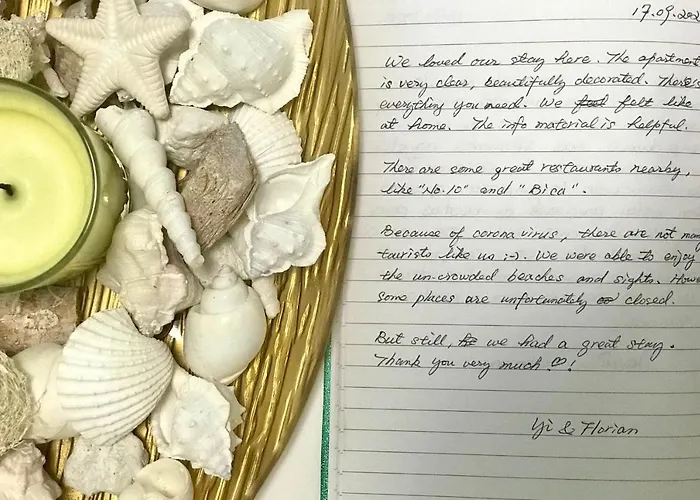 17.09.202
We loved our stay here. The apartment
is very clear, beautifully decorated. There is
everything you need. We feel felt like
at home. The info material is helpful.
There are some great restaurants nearby,
like "No.10" and "Bica".
Because of corona virus, there are not man
tourists like us :-). We were able to enjoy
the un-crowded beaches and sights. Howe
some places are unfortunately closed.
But still, we had a great stay.
Thank you very much ♡!
Yi & Florian